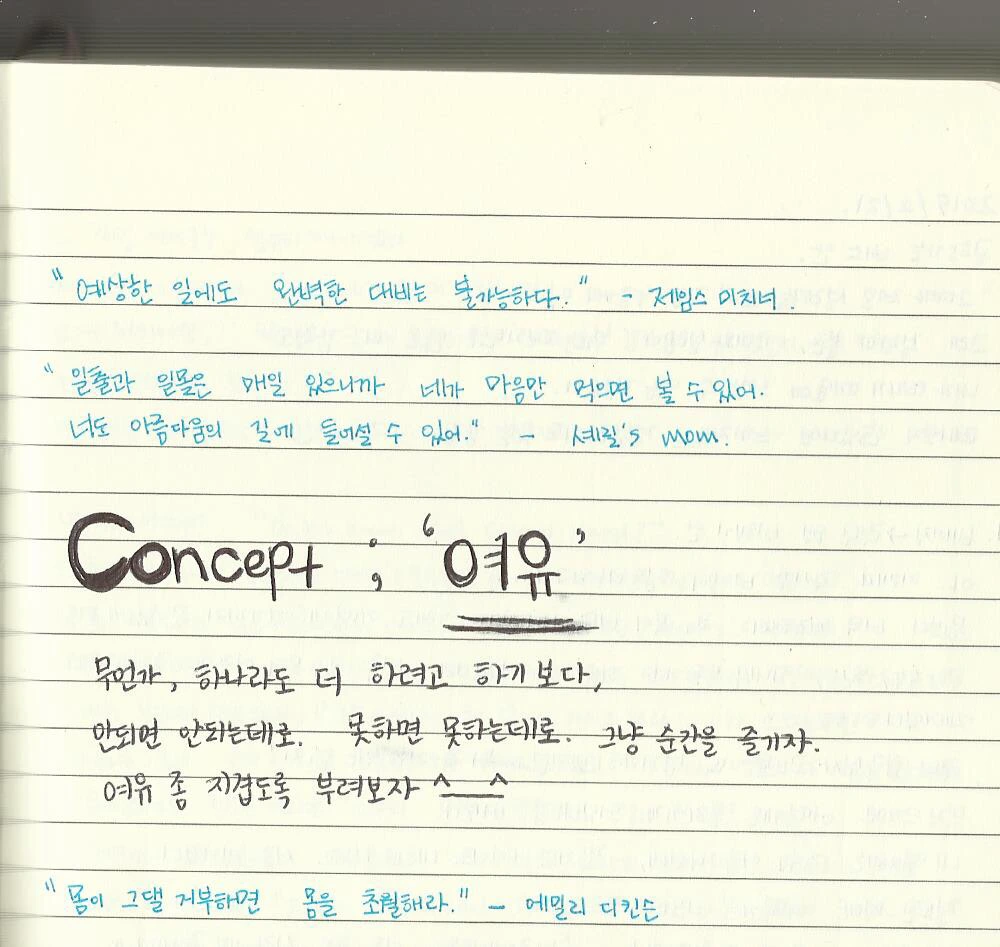 "예상한 일에도 완벽한 대비는 불가능하다." - 제임스 미치너.
"일출과 일몰은 매일 있으니까 네가 마음만 먹으면 볼 수 있어.
너도 아름다움의 길에 들어설 수 있어." - 셰릴's mom.
Concept ; '여유'
무언가, 하나라도 더 하려고 하기 보다,
안되면 안되는데로. 못하면 못하는데로. 그냥 순간을 즐기자.
여유 좀 지겹도록 부려보자 ^__^
"몸이 그댈 거부하면 몸을 초월해라." - 에밀리 디킨슨